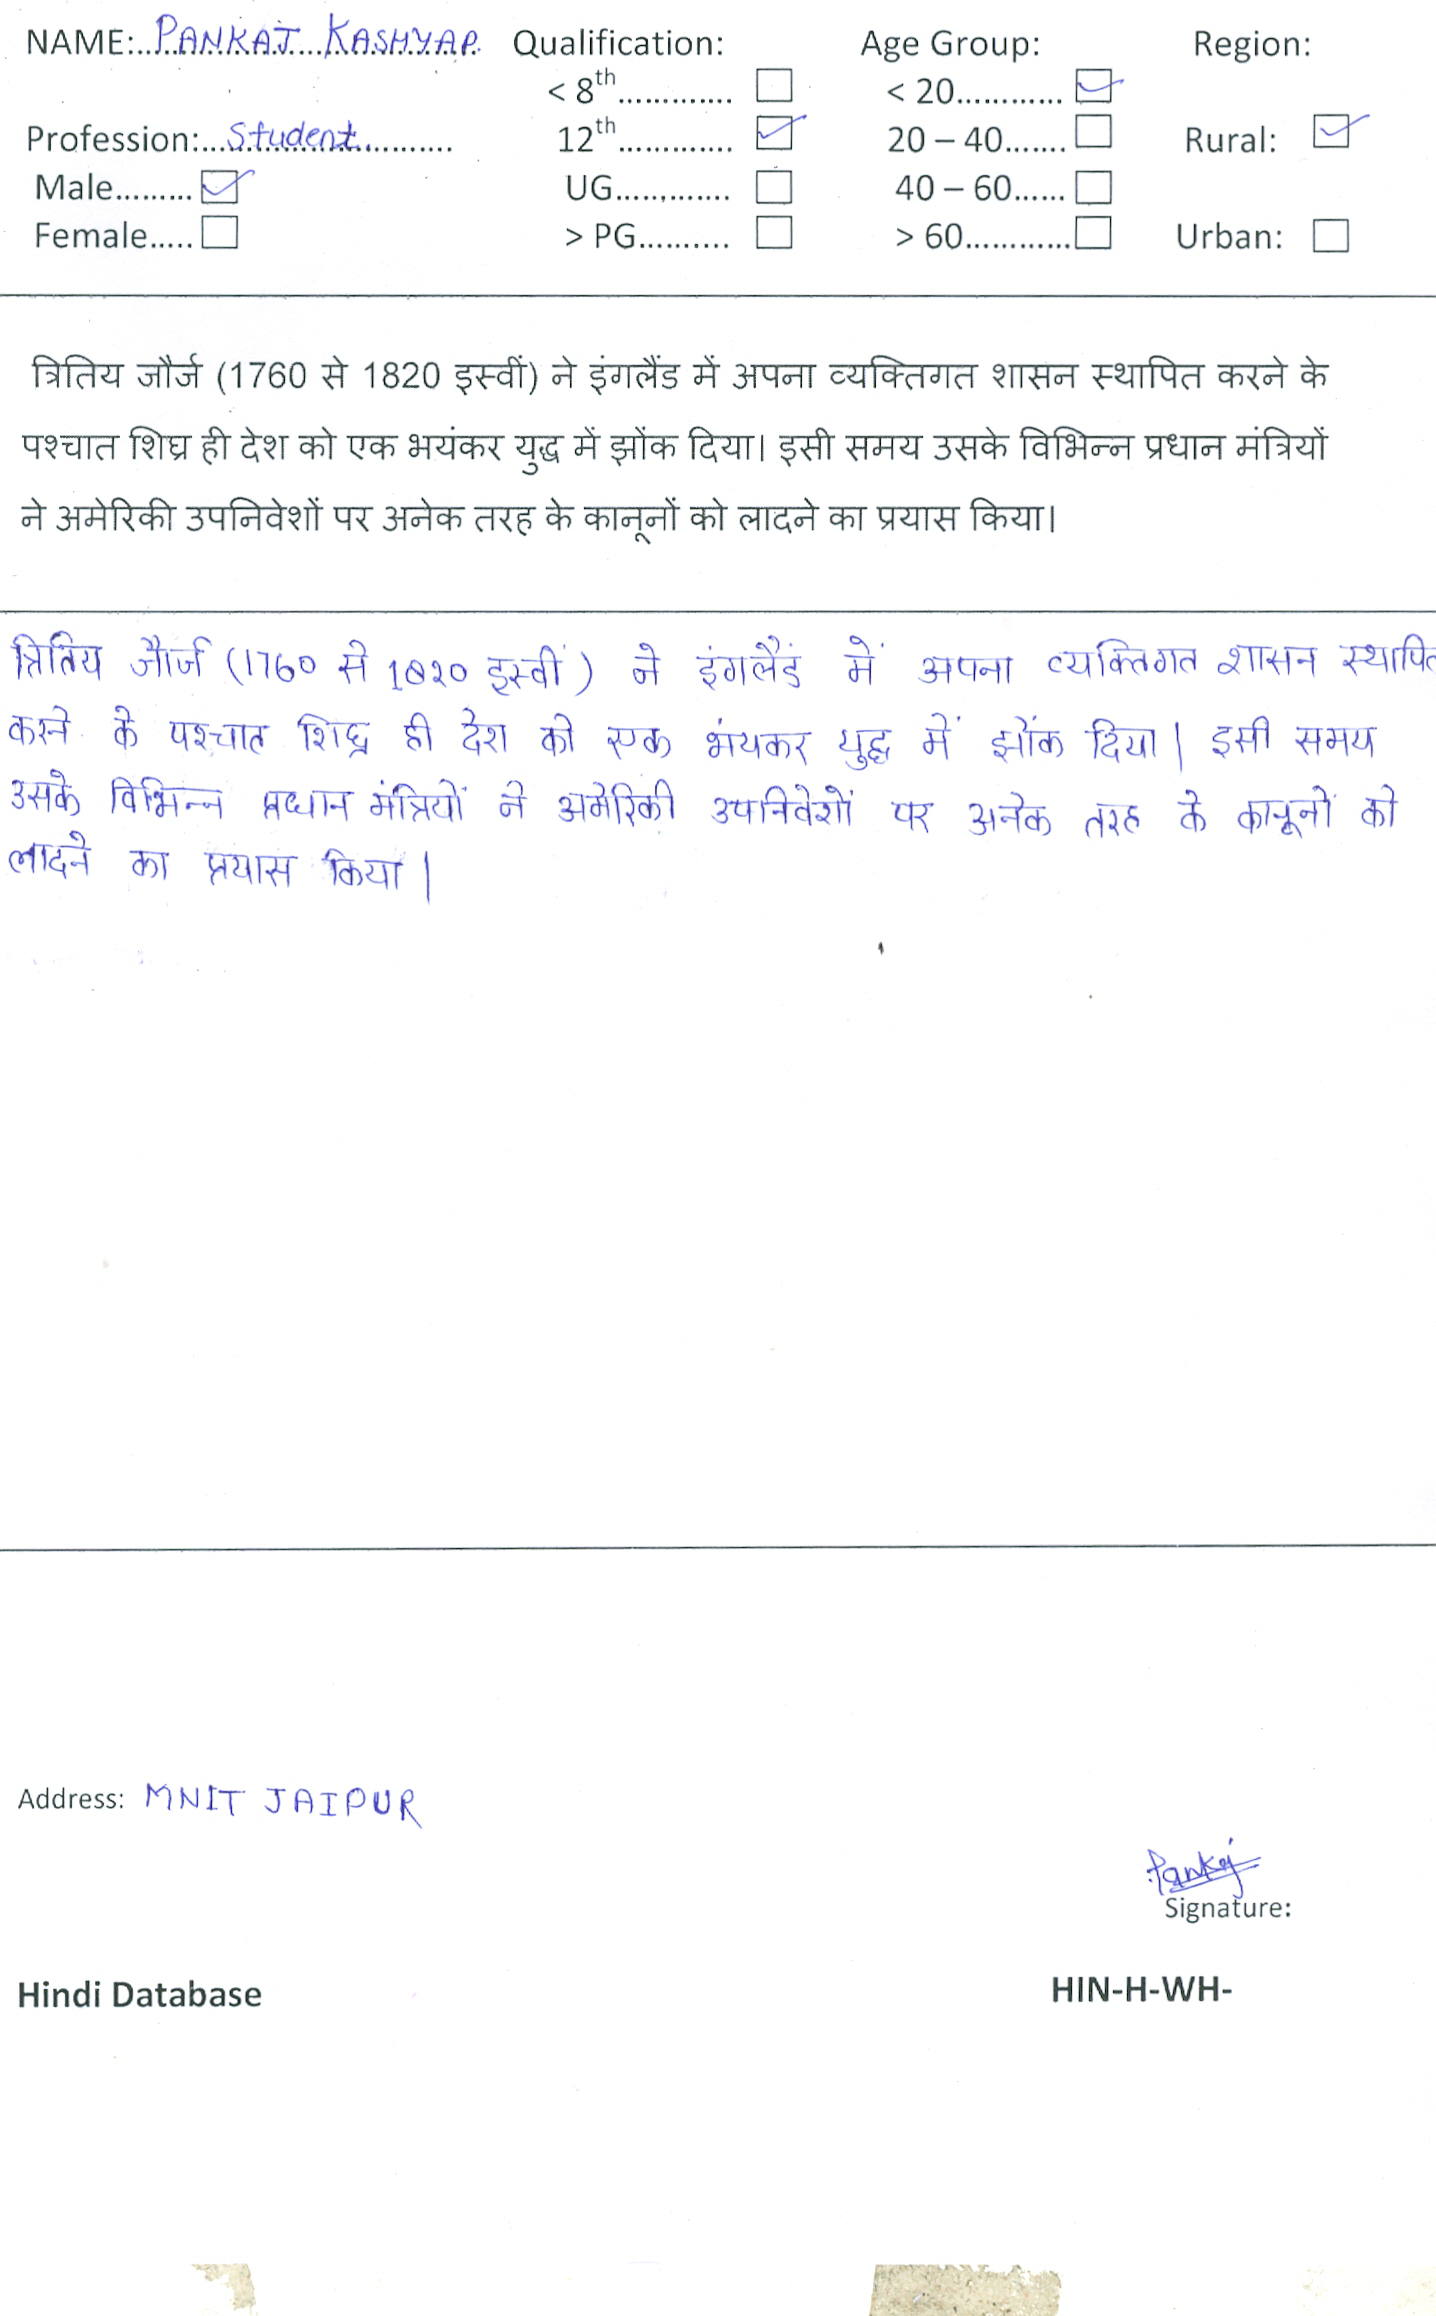 NAME:..PANKAJ...KASHYAP. Qualification: Age Group: Region:
< 8th............. < 20............
Profession:...Student............ 12th............. 20 – 40....... Rural:
Male......... UG............. 40 – 60......
Female..... > PG.......... > 60............ Urban:
त्रितिय जौर्ज (1760 से 1820 इस्वीं) ने इंगलैंड में अपना व्यक्तिगत शासन स्थापित करने के
पश्चात शिघ्र ही देश को एक भयंकर युद्ध में झोंक दिया। इसी समय उसके विभिन्न प्रधान मंत्रियों
ने अमेरिकी उपनिवेशों पर अनेक तरह के कानूनों को लादने का प्रयास किया।
त्रितिय जौर्ज (1760 से 1820 इस्वीं) ने इंगलैडं में अपना व्यक्तिगत शासन स्थापित
करने के पश्चात शिघ्र ही देश को एक भंयकर युद्ध में झोंक दिया। इसी समय
उसके विभिन्न प्रधान मंत्रियों ने अमेरिकी उपनिवेशों पर अनेक तरह के कानूनों को
लादने का प्रयास किया।
Address: MNIT JAIPUR
Pankaj
Signature:
Hindi Database HIN-H-WH-